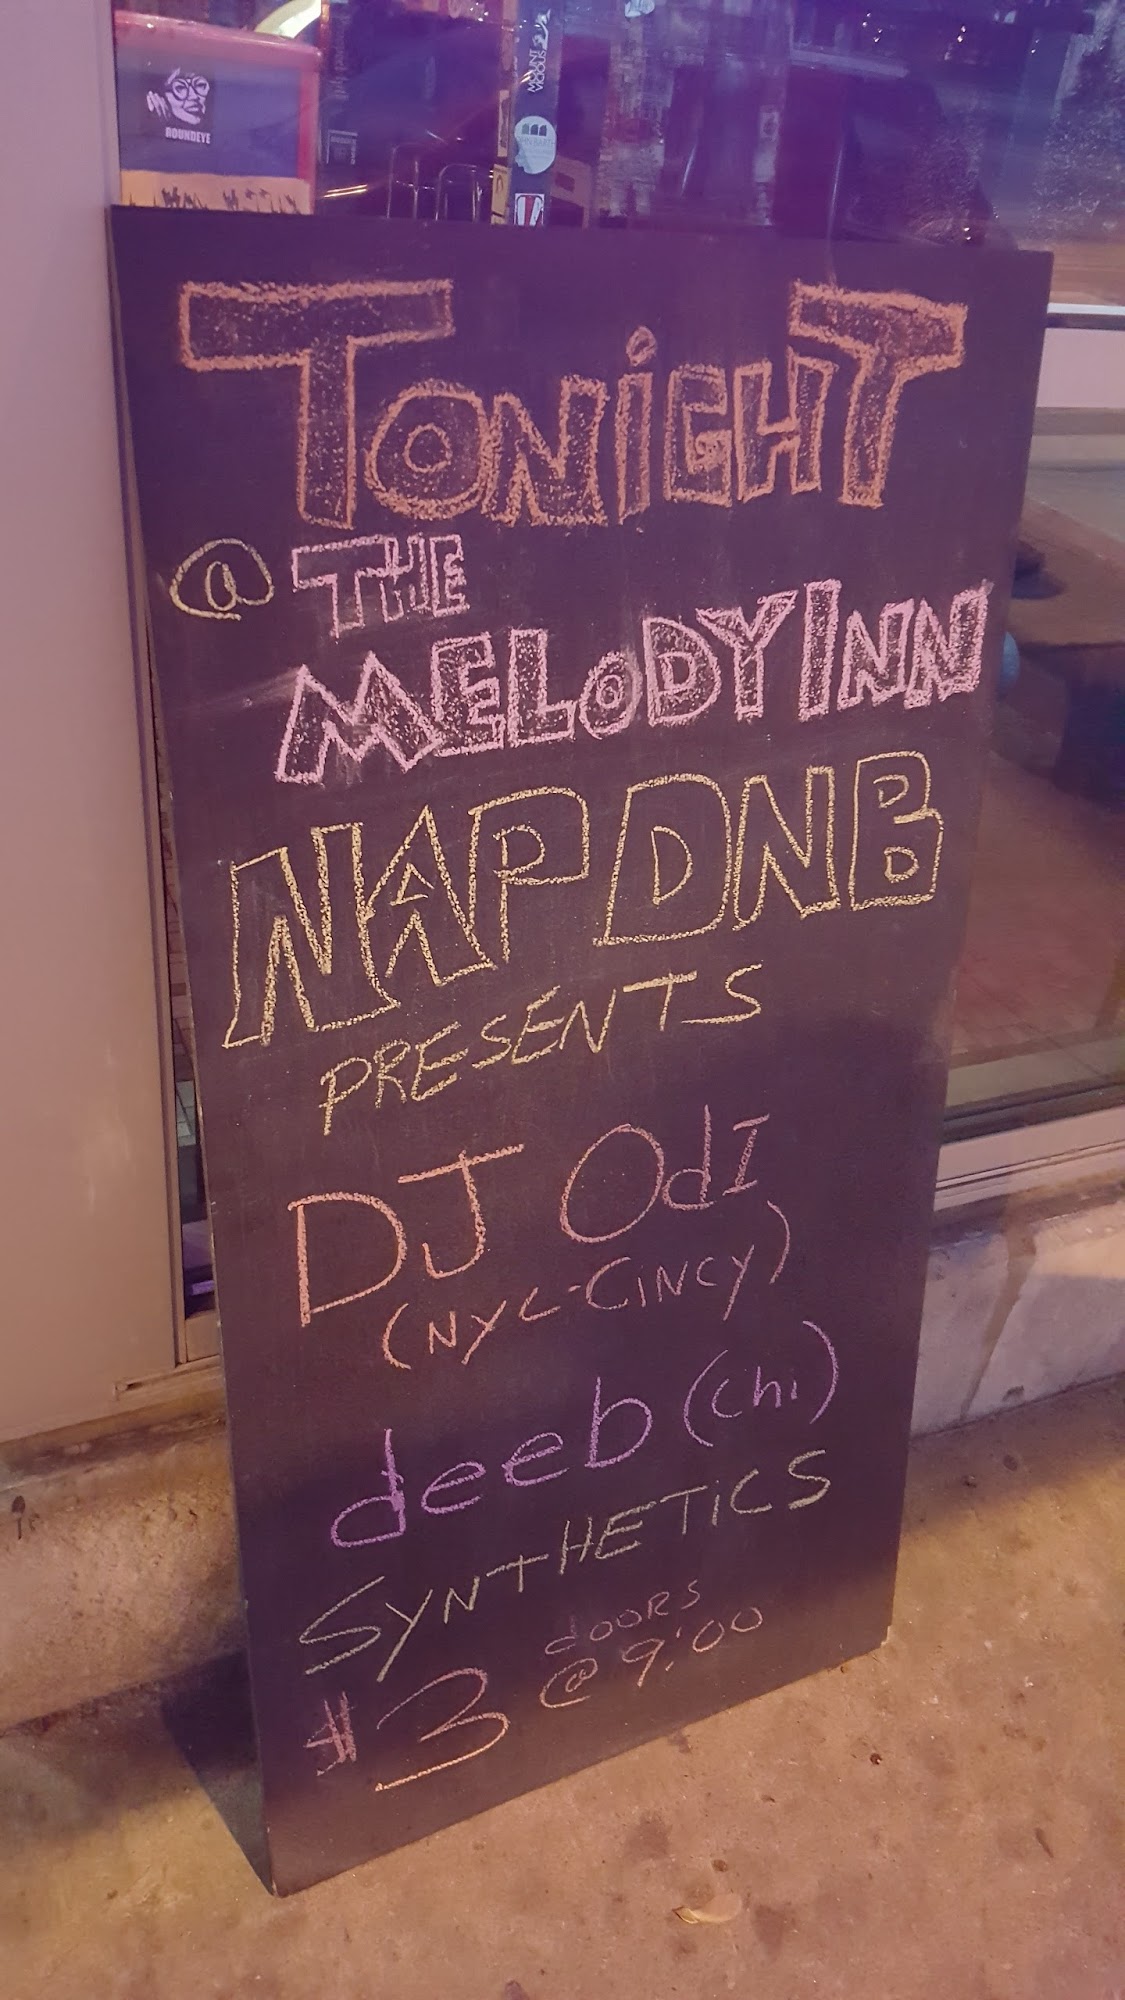 ROUNDEYE
MOUNT
MODUS
TONiGHT
@ THE
MELODY INN
NAP DNB
PRESENTS
DJ OdI
(NYC-CiNCY)
deeb (Chi)
SYNTHETiCS
$3 doors
@ 9:00